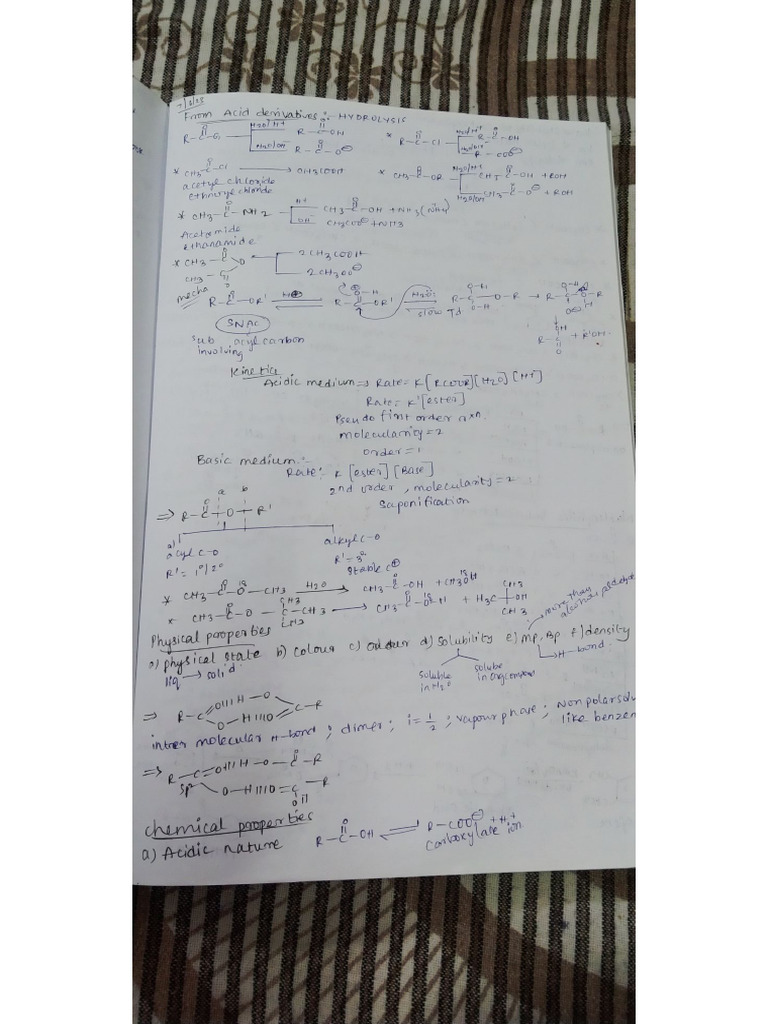 From Acid derivatives :- HYDROLYSIS
R-C(=O)-G H2O/H+ R-C(=O)-OH * R-C(=O)-Cl H2O/H+ R-C(=O)-OH
H2O/OH R-C(=O)-O⊖ R-COO⊖
* CH3-C(=O)-Cl → CH3COOH * CH3-C(=O)-OR H2O/H+ C(=O)-OH + ROH
acetyl chloride H2O/OH CH3-C-O⊖ + ROH
* CH3-C(=O)-NH2 H+ CH3-C(=O)-OH + NH3
OH CH3COO⊖ + NH3
Acetamide
ethanamide
* CH3-C(=O) O 2CH3COOH
CH3-C(=O) 2CH3OO⊖
mecha R-C(=O)-OR' H⊕ ⇌ R-C-OR' H2O R-C-O-R → R-C-O-R
slow
SNAC
R-C-OH + R'OH
sub acyl carbon
involving
Kinetics
Acidic medium ⇒ Rate = K[RCOOR][H2O][H+]
Rate = K'[ester]
Pseudo first order rxn
molecularity = 2
order = 1
Basic medium :-
Rate: K [ester] [Base]
2nd order, molecularity = 2
Saponification
a b
⇒ R-C(=O)-O-R'
a) acyl C-O alkyl C-O
R' = 1°/2° R' = 3°
stable C⊕
* CH3-C(=O)-O18-CH3 H2O → CH3-C(=O)-OH + CH3O18H
* CH3-C(=O)-O-C(CH3)(CH3)-CH3 → CH3-C(=O)-O18-H + H3C-C(CH3)(CH3)-OH
more than
Physical properties
a) physical state b) colour c) odour d) Solubility e) Mp, Bp f) density
liq → solid soluble in H2O soluble in org compound H-bond
⇒ R-C O IIII H-O C-R
O-H IIII O
inter molecular H-bond ; dimer ; i = 1/2 ; vapour phase ; Non polar
like benzen
⇒ R-C=O IIII H-O-C(=O)-R
O-H IIII O=C-R
chemical properties
a) Acidic nature R-C(=O)-OH ⇌ R-COO⊖ + H+
carboxylate ion